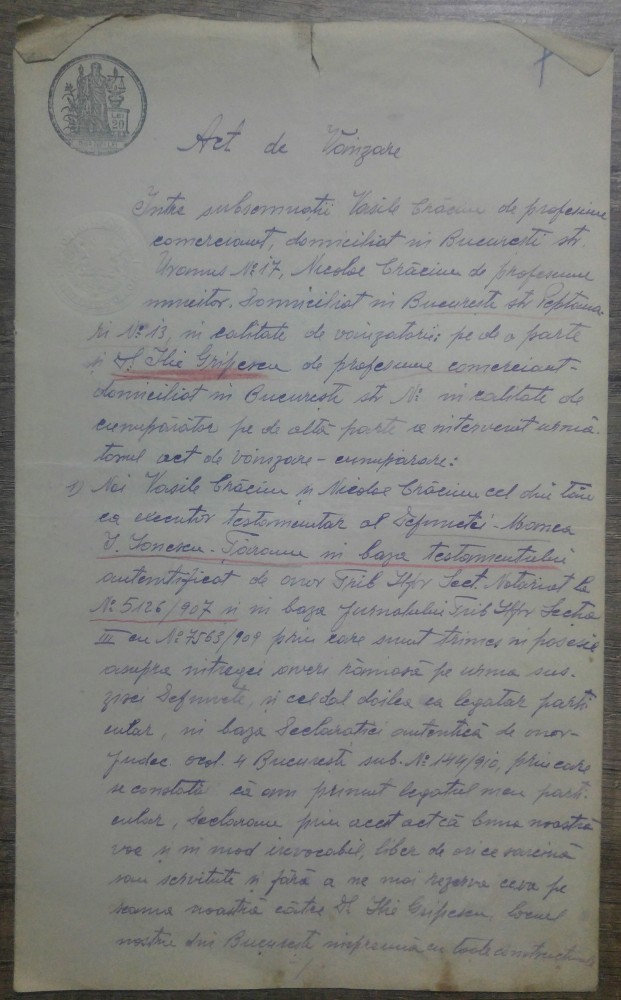 LEI
20
Act de Vânzare
Intre subsemnații Vasile Crăciun de profesiune
comerciant, domiciliat in București str.
Uranus No 17, Nicolae Crăciun de profesiune
muncitor. Domiciliat in București str
ri No 13, in calitate de vânzatori; pe de o parte
și D. Ilie Gripcescu de profesiune comerciant-
domiciliat in București str No in calitate de
cumpărător pe de altă parte a intervenit urmă-
torul act de vânzare-cumparare:
1) Noi Vasile Crăciun și Nicolae Crăciun cel din tâiu
ca executor testamentar al Defunctei
V. Ionescu in baza testamentului
autentificat de onor Trib Ilfov Sect. Notariat la
No 5126/907 și in baza Jurnalului Trib Ilfov Secția
III cu No 7563/909 prin care sunt trimes in posesie
asupra intregei averi rămasă pe urma sus-
zisei Defuncte, și cel dal doilea ca legatar parti
cular, in baza Declarației autentică de onor-
Judec ocol. 4 București sub. No 144/910, prin care
se constată că am primit legatul meu parti
cular, Declarăm prin acest act că buna noastră
voe și in mod irevocabil, liber de orice sarcină
sau servitute și fără a ne mai rezerva ceva pe
seama noastră către D. Ilie Gripcescu, locul
nostru din București impreună cu toate construcțiunile